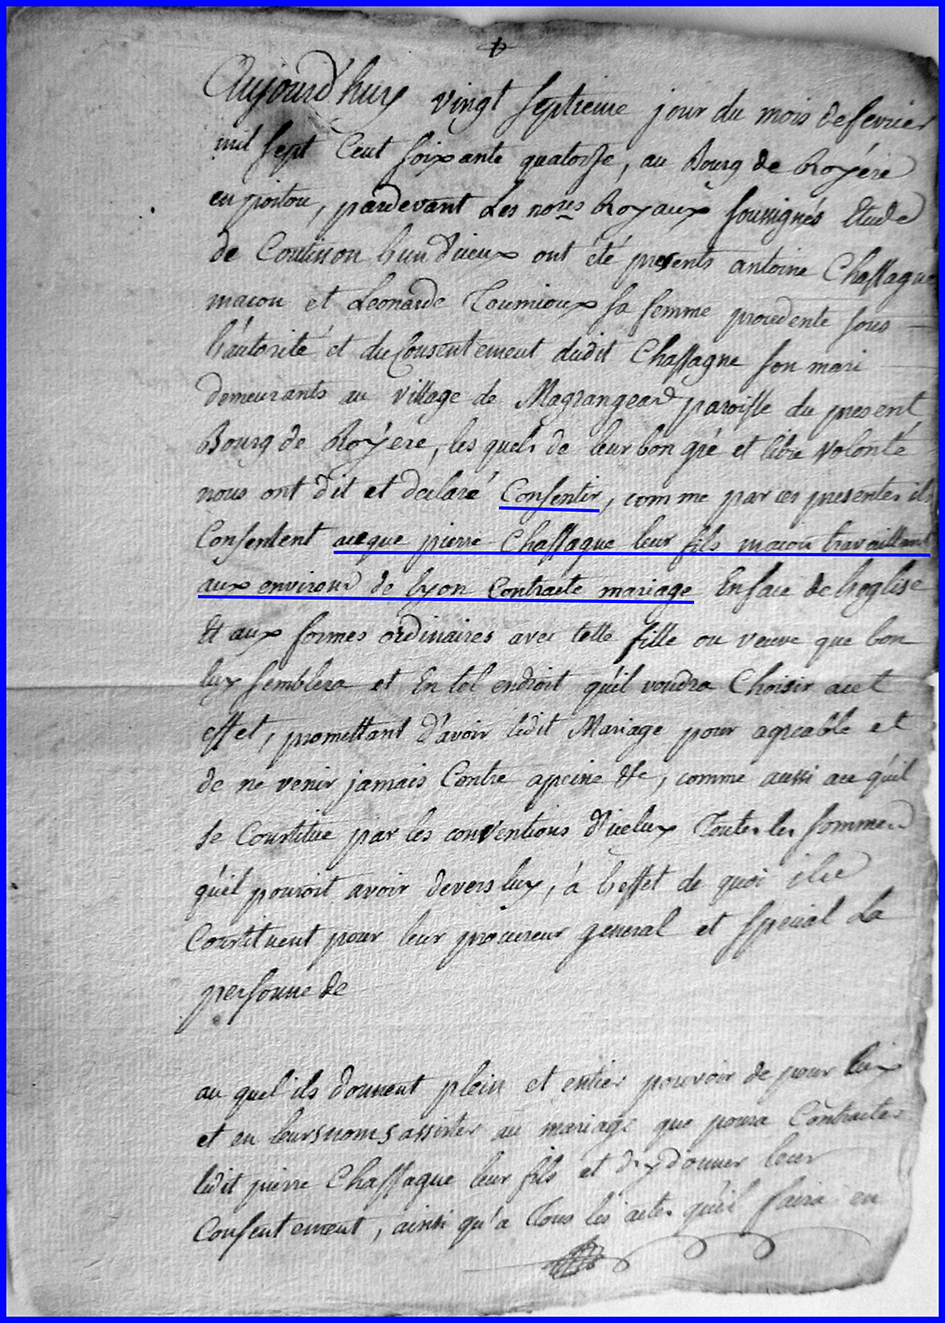 Aujourd'huy vingt septieme jour du mois de fevrier
mil sept Cent soixante quatorse, au Bourg de Royére
en poitou, pardevant Les no.res Royaux soussignés Etude
de Coutisson ont été presents antoine Chassagne
macon et Leonarde Toumioux sa femme procedente sous
L'autorité et du Consentement dudit Chassagne son mari
demeurants au village de Magrangeard paroisse du present
Bourg de Royére, les quels de leur bon gré et libre volonté
nous ont dit et declaré Consentir, comme par ces presentes ils
Consentent aceque pierre Chassagne leur fils macon travaillant
aux environs de Lyon Contracte mariage En face de L'eglise
Et aux formes ordinaires avec telle fille ou veuve que bon
luy semblera et En tel endroit qu'il voudra Choisir acet
effet, promettant d'avoir ledit Mariage pour agreable et
de ne venir jamais Contre apeine &c, comme aussi ace qu'il
se Constitue par les conventions d'iceluy Toutes les sommes
qu'il pouroit avoir devers luy, à L'effet de quoi ils
Constituent pour leur procureur general et special La
personne de
au quel ils donnent plein et entier pouvoir de pour Eux
et en leurs noms assister au mariage que poura Contracter
ledit pierre Chassagne leur fils et d'y donner leur
Consentement, ainsi qu'a Tous les actes qu'il faira en